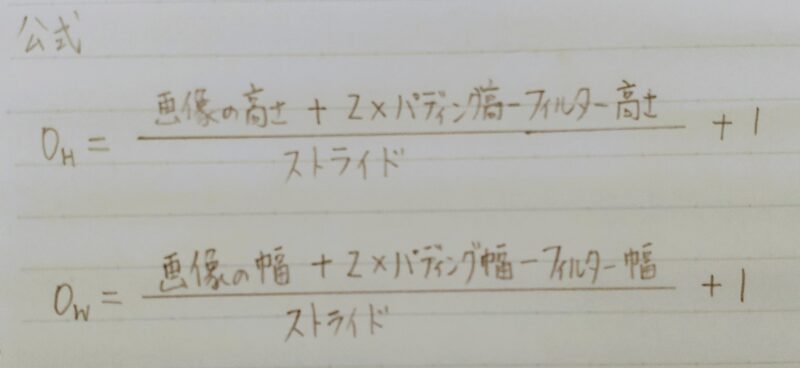 公式
O_H = 画像の高さ + 2×パディング高-フィルター高さ / ストライド + 1
O_W = 画像の幅 + 2×パディング幅-フィルター幅 / ストライド + 1